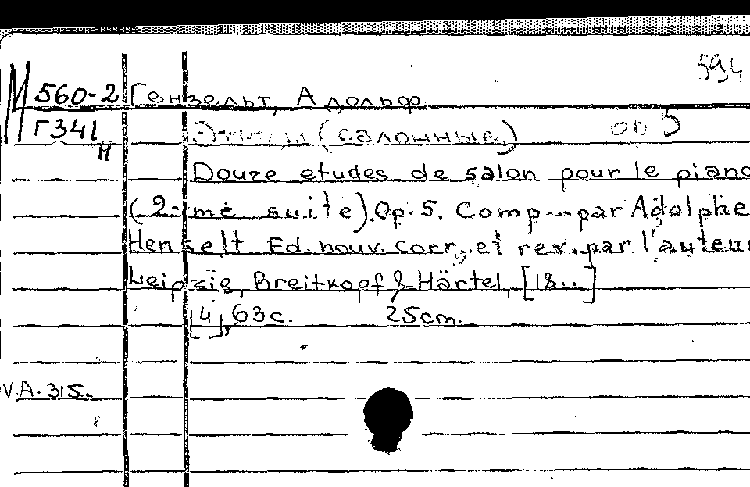 594
М 560-2 Гензельт, Адольф
Г341 н Этюды (салонные) op 5
Douze etudes de salon pour le piano
(2-me suite). Op. 5. Comp. par Adolphe
Henselt. Ed. nouv. corr. et rev. par l'auteur
Leipzig, Breitkopf & Härtel, [18..]
[4], 63 с. 25cm.
V.A. 315.